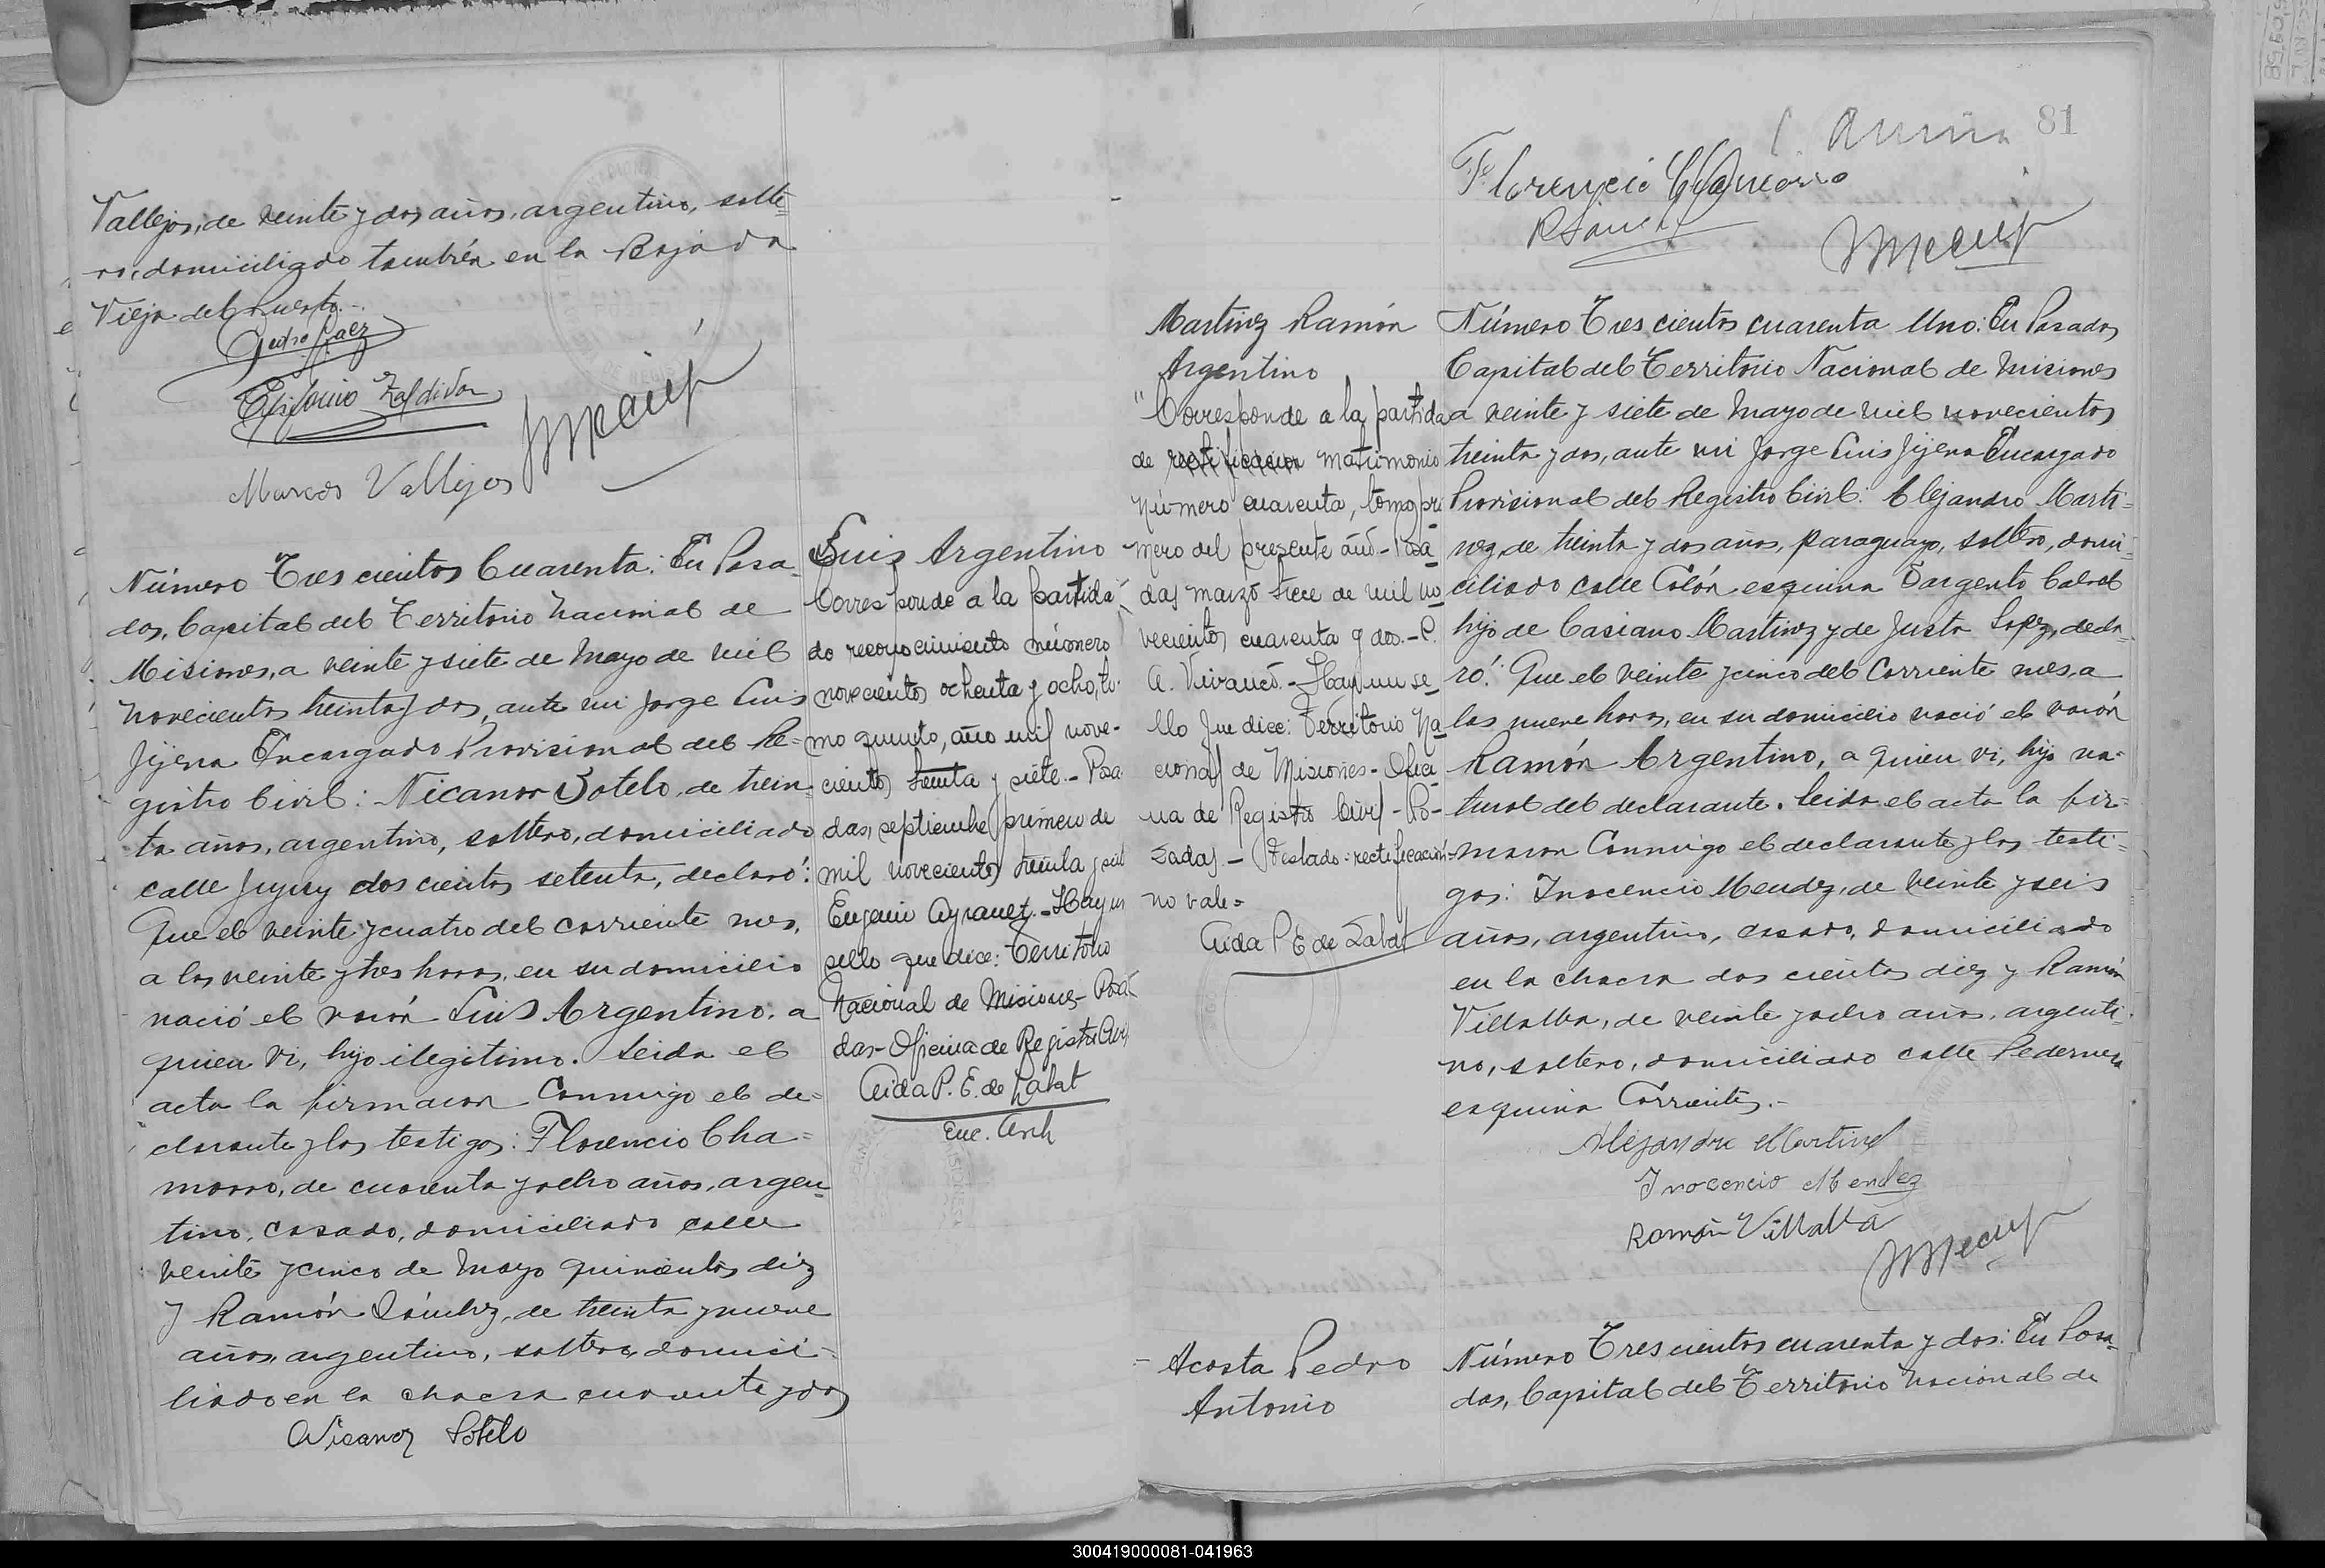 Vallejos, de veinte y dos años, argentino, solte-
ro, domiciliado también en la Bajada
Vieja del Puerto.-
Pedro Paez
Zaldivar
Marcos Vallejos
Número Trescientos Cuarenta: En Posa-
das, Capital del Territorio Nacional de
Misiones, a veinte y siete de Mayo de mil
novecientos treinta y dos, ante mi Jorge Luis
Jijena Encargado Provisional del Re=
gistro Civil: Nicanor Sotelo, de trein-
ta años, argentino, soltero, domiciliado
calle Jujuy doscientos setenta, declaró:
Que el veinte y cuatro del corriente mes,
a las veinte y tres horas, en su domicilio
nació el varón Luis Argentino, a
quien vi, hijo ilegitimo. Leida el
acta la firmaron Conmigo el de=
clarante y los testigos: Florencio Cha=
morro, de cuarenta y ocho años, argen-
tino, casado, domiciliado calle
veinte y cinco de Mayo quinientos diez
y Ramón Sánchez, de treinta y nueve
años, argentino, soltero, domici-
liado en la chacra cuarenta y dos
Nicanor Sotelo
Luis Argentino
Corresponde a la partida
de reconocimiento número
novecientos ochenta y ocho, to-
mo quinto, año mil nove-
cientos treinta y siete.- Posa-
das, septiembre primero de
mil novecientos treinta y siete
Eugenio - Hay un
sello que dice: Territorio
Nacional de Misiones- Posa-
das- Oficina de Registro Civil
Aida P. E. de Labat
Enc. Arch
81
Florencio Chamorro
R Sanchez
Martinez Ramón
Argentino
"Corresponde a la partida
de rectificacion matrimonio
número cuarenta, tomo pri-
mero del presente año- Posa-
das marzo trece de mil no-
vecientos cuarenta y dos.- C.
A. Vivanco.- Hay un se-
llo que dice: Territorio Na-
cional de Misiones- Ofici-
na de Registro Civil - Po-
sadas.- Testado: rectificación=
no vale=
Aida P E de Labat
Número Trescientos cuarenta Uno: En Posadas
Capital del Territorio Nacional de Misiones
a veinte y siete de Mayo de mil novecientos
treinta y dos, ante mi Jorge Luis Jijena Encargado
Provisional del Registro Civil: Alejandro Marti=
nez, de treinta y dos años, paraguayo, soltero, domi-
ciliado calle Colón esquina Sargento Cabral
hijo de Casiano Martinez y de Justa Lopez, decla-
ró: Que el veinte y cinco del Corriente mes, a
las nueve horas, en su domicilio nació el varón
Ramón Argentino, a quien vi, hijo na-
tural del declarante. Leida el acta la fir=
maron Conmigo el declarante y los testi=
gos: Inocencio Mendez, de veinte y seis
años, argentino, casado, domiciliado
en la chacra doscientos diez y Ramón
Villalba, de veinte y ocho años, argenti-
no, soltero, domiciliado calle Pedernera
esquina Corrientes.-
Alejandro Martinez
Inocencio Mendez
Ramón Villalba
Acosta Pedro
Antonio
Número Trescientos cuarenta y dos: En Posa-
das, Capital del Territorio Nacional de
300419000081-041963